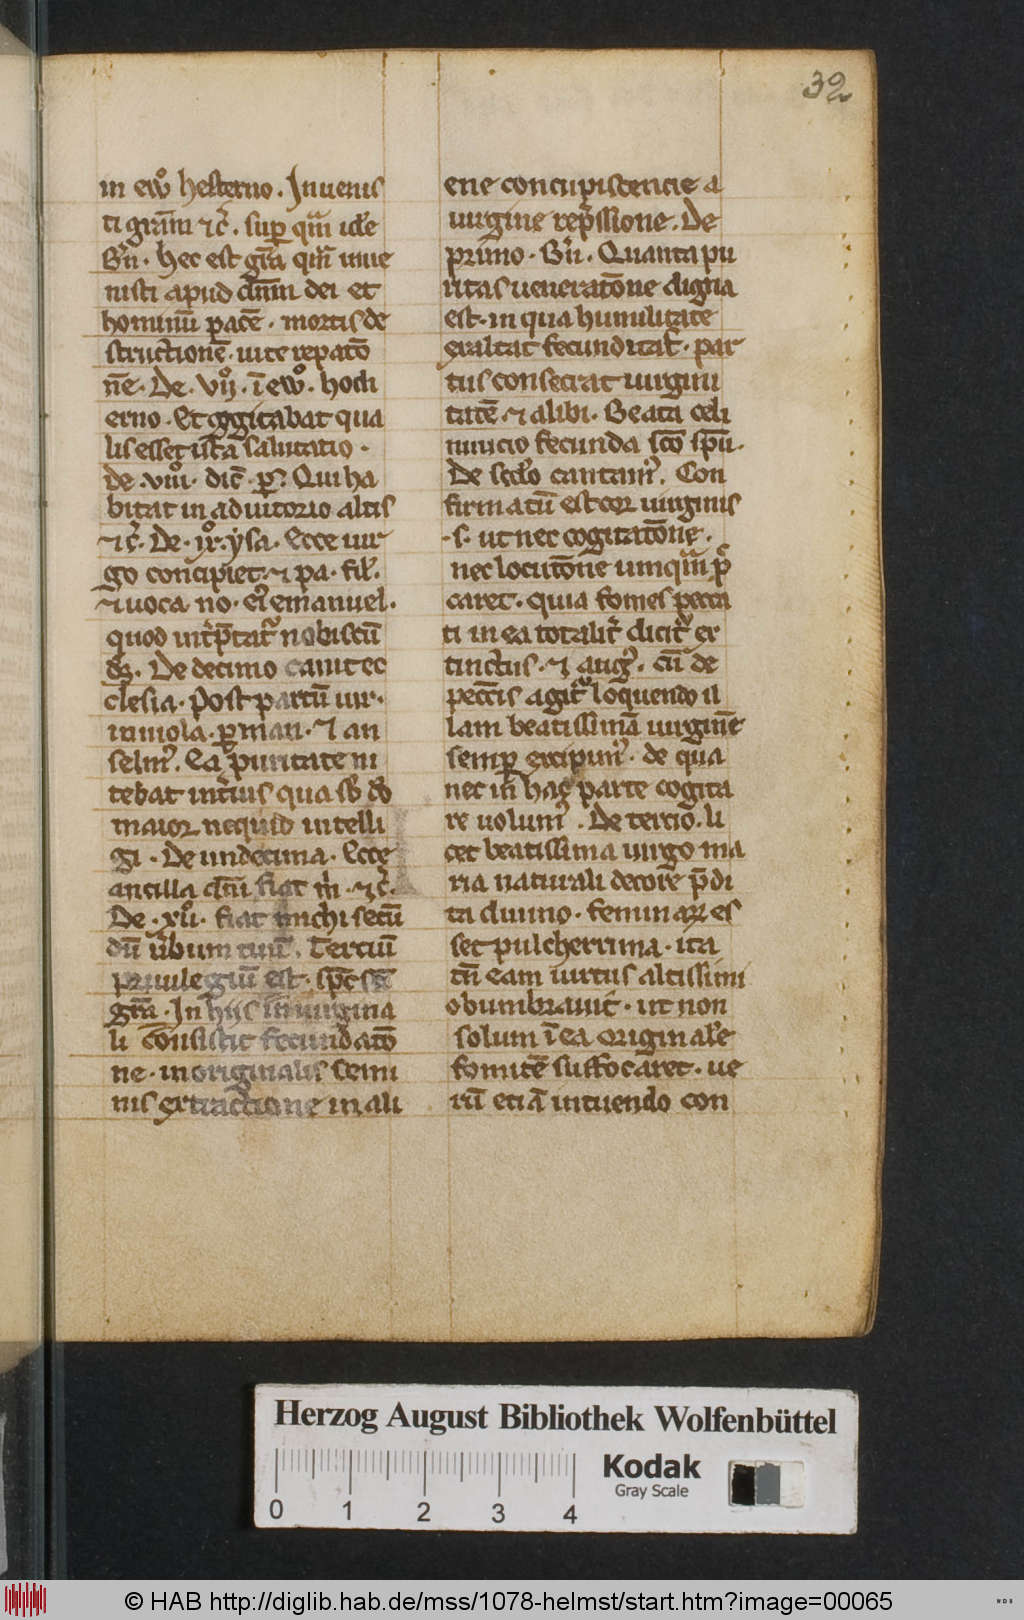 32
in ew̅o hesterno . Inuenis
ti gram̅ ⁊c̅ . sup̲ qua̅m ide̅
B'n . hec est gr̅a qua̅m inue
nisti apud dn̅m dei et
hominu̅ pace̅ . mortis de
structione̅ . uite repato̅
ne̅ . De . vijo . i̅ ewo . hodi
erno . Et cogitabat qua
lis esset ista salutatio .
de . viiio . dic̅ . p̅s . Qui ha
bitat in adiutorio altis
⁊c̅ . De . ixo . ysa . Ecce uir
go concipiet . ⁊ pa . fil̅ .
⁊ uoca . no . ei' emanuel .
quod int̅p̅tat̅ nobiscu̅
ds̅ . De decimo canit ec
clesia . Post partu̅ uir .
inuiola . p̲man . ⁊ an
selm' . Ea puritate ni
tebat int̅ius qua sb̅ do̅
maior nequid intelli
gi . De undecima . Ecce
ancilla dn̅i fiat m̅ . ⁊c̅ .
De . xiio . fiat michi secu̅
du̅ u̅bum tuu̅ . Terciu̅
priuilegiu̅ est . sp̅c s̅
gr̅a . In hiis in uirgina
li consistit fecundato̅
ne . in originalis semi
nis extractione in ali
ene concupiscencie a
uirgine rep̅ssione . De
primo . B'n . Quanta pu
ritas ueneratõne digna
est . in qua humilitate
exaltat fecunditat̅ . par
tus consecrat uirgini
tate̅ . ⁊ alibi . Beata celi
nuncio fecunda sc̅o sp̅u .
De sc̅do cantam' . Con
firmatu̅ est cor uirginis
. s . ut nec cogitato̅ne .
nec locuto̅ne umqua̅m p̅
caret . quia fomes pecca
ti in ea totalit̅ dicit̅ ex
tinctus . ⁊ aug' . cu̅ de
pecc̅is agit̅ loquendo il
lam beatissima̅ uirgine̅
semp̲ excipim' . de qua
nec in hac parte cogita
re uolum' . De tercio . li
cet beatissima uirgo ma
ria naturali decore p̅di
ta diuino . feminarum es
set pulcherrima . ita
tn̅ eam uirtus altissimi
obumbrauit̅ . ut non
solum i̅ ea originale̅
fomite̅ suffocaret . ue
ru̅ etia̅ intuendo con
Herzog August Bibliothek Wolfenbüttel
Kodak
Gray Scale
0 1 2 3 4
© HAB http://diglib.hab.de/mss/1078-helmst/start.htm?image=00065